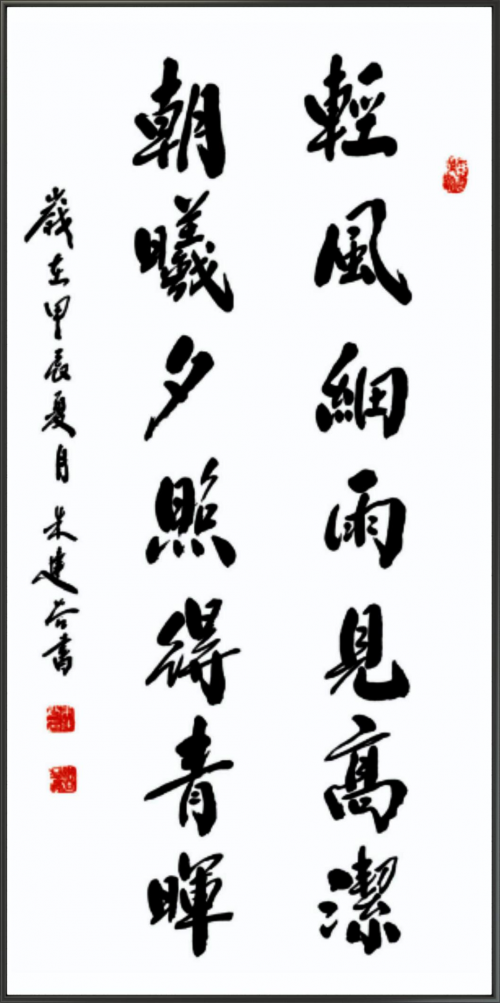 輕風細雨見高潔
朝曦夕照得青暉
歲在甲辰夏月朱建谷書